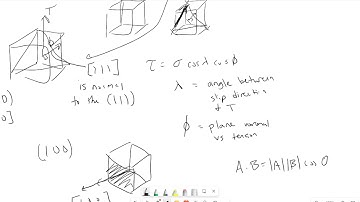 T
[111]
is normal
to the (111)
τ = σ cosλ cosϕ
λ = angle between
slip direction
& T
ϕ = plane normal
vs tension
(100)
A·B=|A||B| cos θ